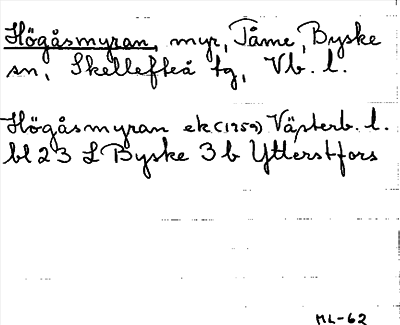 Högåsmyran, myr, Tåme, Byske
sn, Skellefteå tg, Vb. l.
Högåsmyran ek (1959) Västerb. l.
bl 23 L Byske 3 b Ytterstfors
ML-62